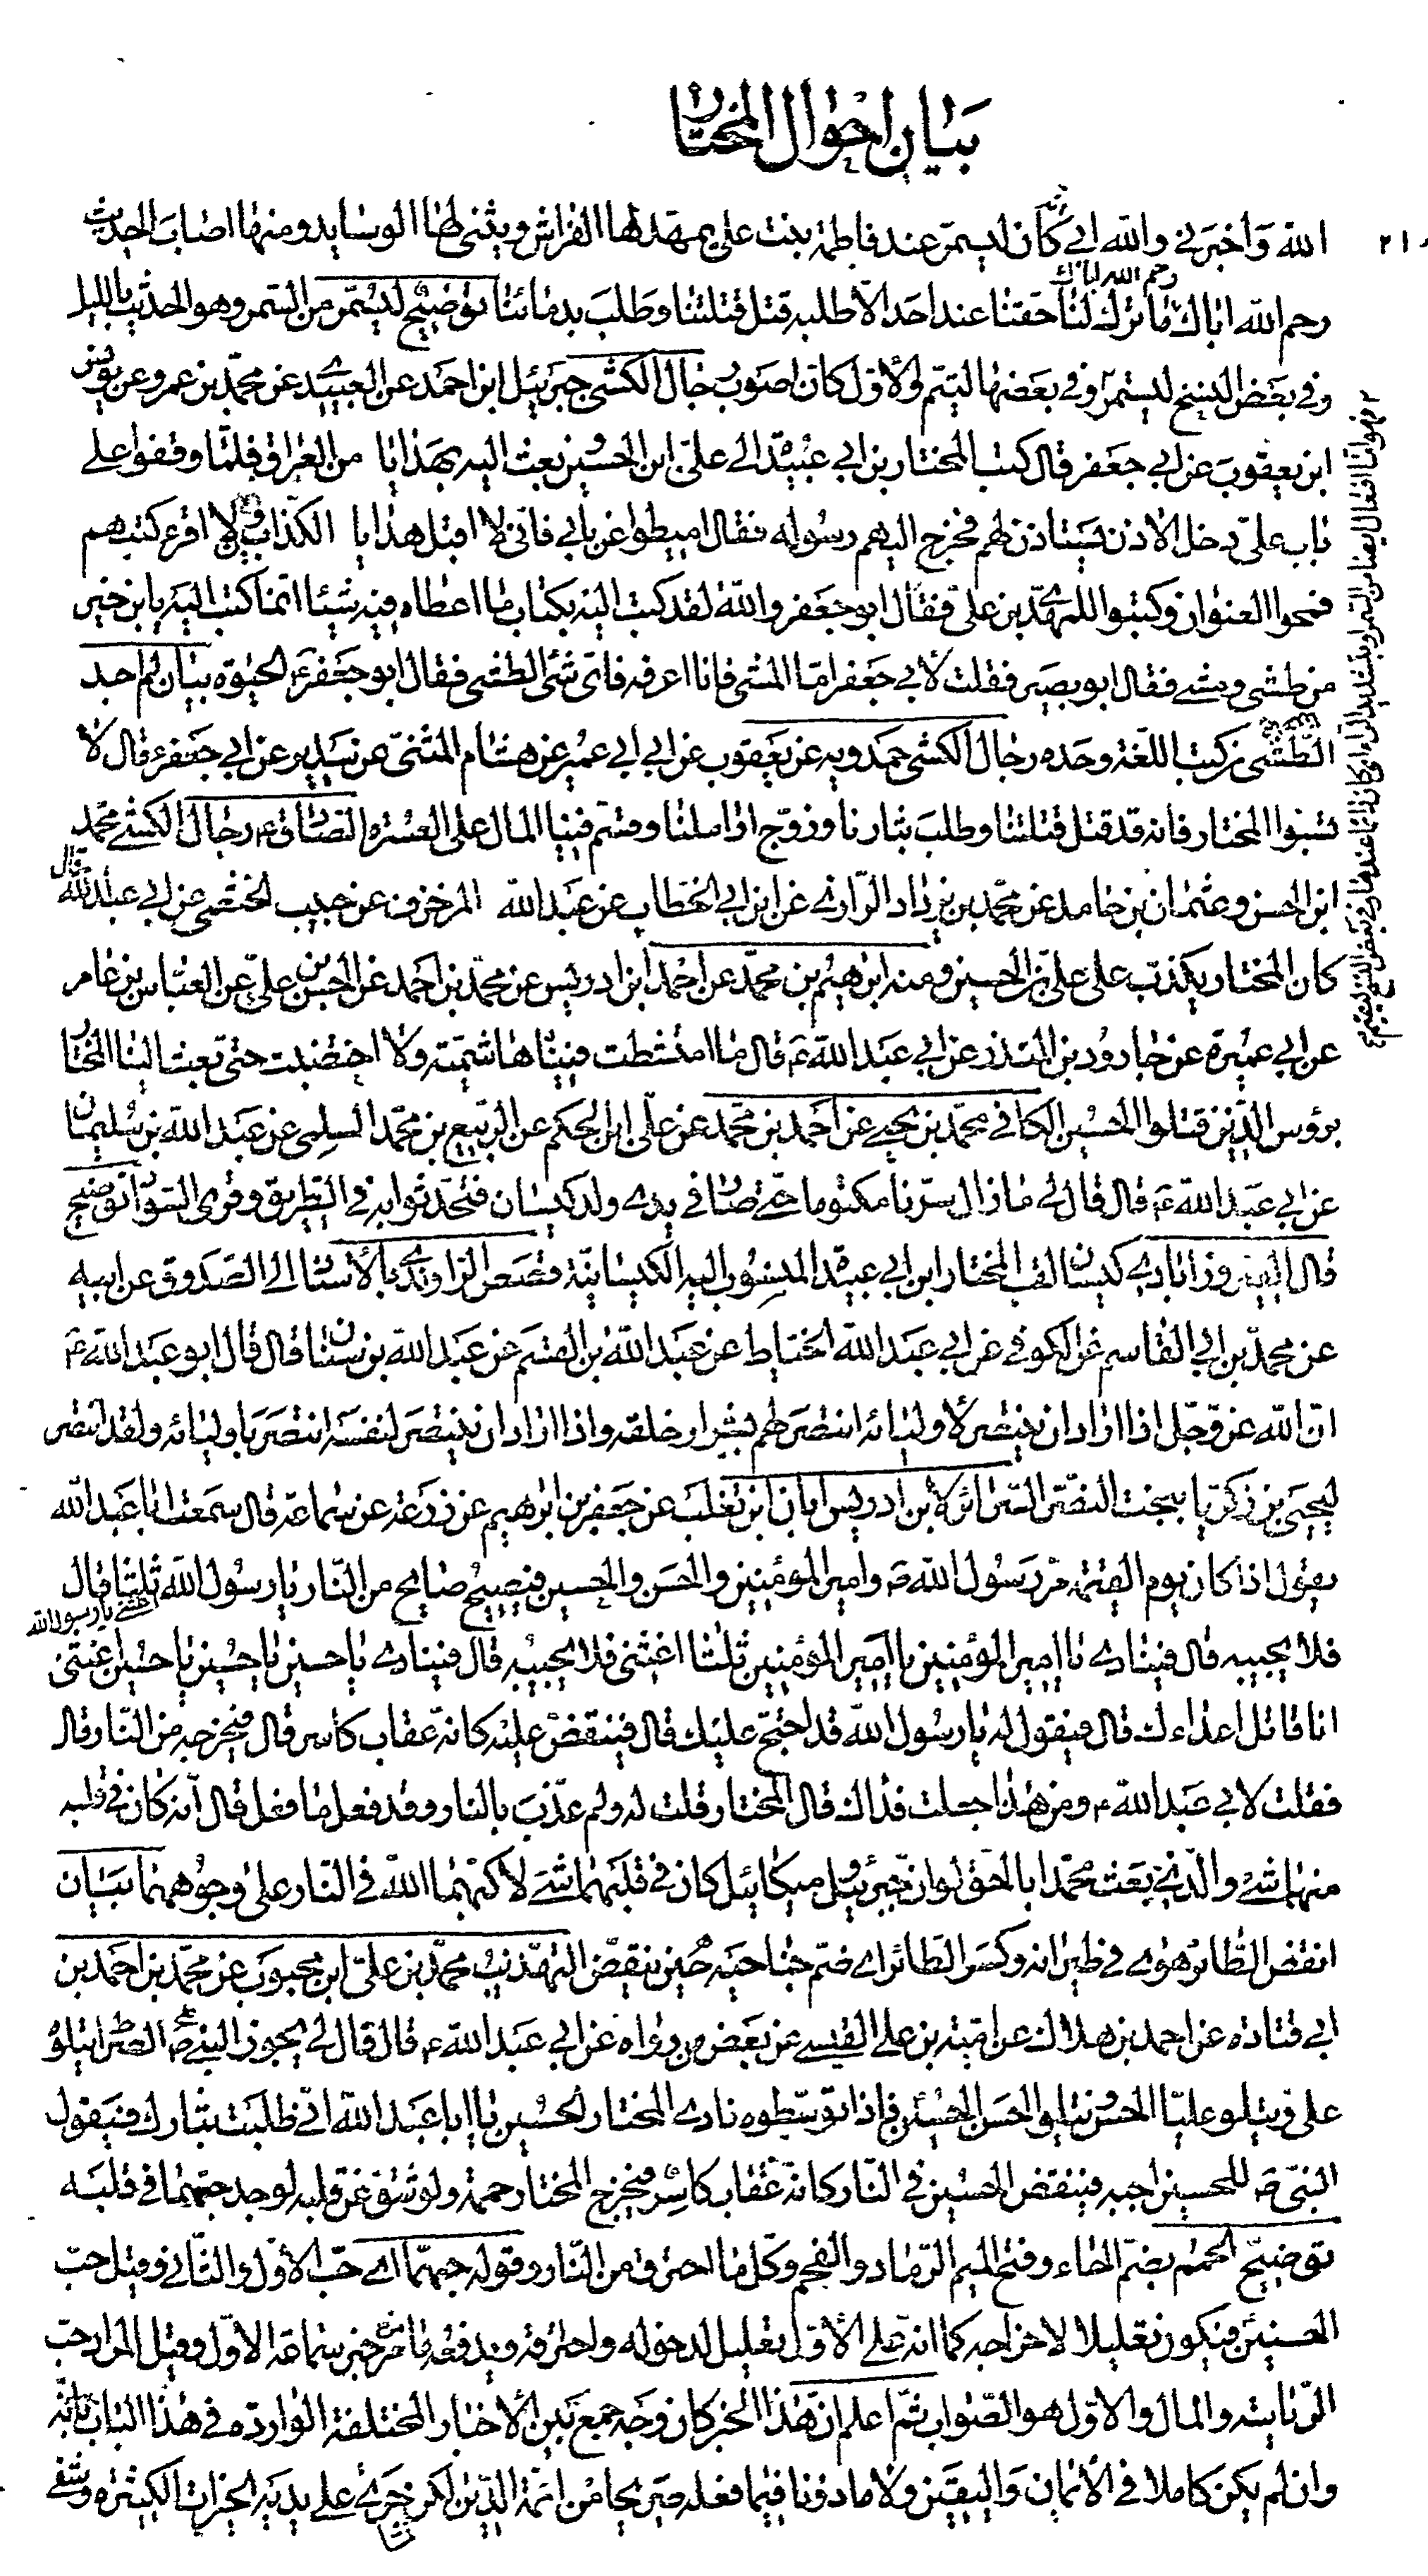 بيان احوال المختار
٢١٠
الله واخبرني والله ابي كان ليسمر عند فاطمة بنت علي يمهد لها الفراش ويثني لها الوسايد ومنها اصاب الحديث
رحم الله اباك رحم الله اباك ما ترك لنا حقنا عند احد الا طلبه قتل قتلتنا وطلب بدمائنا توضيح ليسمر من السمر وهو الحديث بالليل
وفي بعض النسخ ليستمر وفي بعضها ليتم والاول كان اصوب رجال الكشي جبرئيل ابن احمد عن العبيدي عن محمد بن عمرو عن يونس
ابن يعقوب عن ابي جعفر قال كتب المختار بن ابي عبيدة الى علي ابن الحسين وبعث اليه بهدايا من العراق فلما وقفوا على
باب علي دخل الاذن يستاذن لهم فخرج اليهم رسوله فقال اميطوا عن بابي فاني لا اقبل هدايا الكذابين ولا اقرء كتبهم
فمحوا العنوان وكتبوا للمهدي محمد بن علي فقال ابو جعفر والله لقد كتب اليه بكتاب ما اعطاه فيه شيئا انما كتب اليه يا بن خير
من طشى ومشى فقال ابو بصير فقلت لابي جعفر اما المشي فانا اعرفه فاي شئ الطشي فقال ابو جعفر ع الحيوة بيان لم اجد
الطشي في كتب اللغة وحده رجال الكشي حمدويه عن يعقوب عن ابن ابي عمير عن هشام المثنى عن سدير عن ابي جعفر ع قال لا
تسبوا المختار فانه قد قتل قتلتنا وطلب بثارنا وزوج اراملنا وقسم فينا المال على العسرة رجال الكشي محمد
ابن الحسن وعثمان بن حامد عن محمد بن يزداد الرازي عن ابن ابي الخطاب عن عبد الله المزخرف عن حبيب الخثعمي عن ابي عبد الله قال
كان المختار يكذب على علي بن الحسين ومنه ابرهيم بن محمد عن احمد ابن ادريس عن محمد بن احمد عن الحسن بن علي عن العباس بن عامر
عن ابي عميرة عن جارود بن المنذر عن ابي عبد الله ع قال ما امتشطت فينا هاشمية ولا اختضبت حتى بعث الينا المختار
برؤس الذين قتلوا الحسين الكافي محمد بن يحيى عن احمد بن محمد عن علي ابن الحكم عن الربيع بن محمد المسلي عن عبد الله بن سليمان
عن ابي عبد الله ع قال قال لي ما زال سرنا مكتوما حتى صار في يدي ولد كيسان فتحدثوا به في الطريق وقرى السواد توضيح
قال الفيروزابادي كيسان لقب المختار ابن ابي عبيد المنسوب اليه الكيسانية قصص الراوندي بالاسناد الى الصدوق عن ابيه
عن محمد بن ابي القاسم عن الكوفي عن ابي عبد الله الخياط عن عبد الله بن القسم عن عبد الله بن سنان قال قال ابو عبد الله ع
ان الله عز وجل اذا اراد ان ينتصر لاوليائه انتصر لهم بشرار خلقه واذا اراد ان ينتصر لنفسه انتصر باوليائه ولقد انتصر
ليحيى بن زكريا ببخت النصر السرائر لابن ادريس ابان ابن تغلب عن جعفر بن ابرهيم عن زرعة عن سماعة قال سمعت ابا عبد الله
يقول اذا كان يوم القيمة مر رسول الله ص وامير المؤمنين والحسن والحسين فيصيح صايح من النار يا رسول الله اغثني يا رسول الله ثلثا قال
فلا يجيبه قال فينادي يا امير المؤمنين يا امير المؤمنين ثلثا اغثني فلا يجيبه قال فينادي يا حسين يا حسين يا حسين اغثني
انا قاتل اعداءك قال فيقول له يا رسول الله قد احتج عليك قال فينقض عليه كانه عقاب كاسر قال فيخرجه من النار قال
فقلت لابي عبد الله ع ومن هذا جعلت فداك قال المختار قلت له ولم عذب بالنار وقد فعل ما فعل قال انه كان في قلبه
منهما شئ والذي بعث محمدا بالحق لو ان جبرئيل وميكائيل كان في قلبهما شئ لاكبهما الله في النار على وجوههما بيان
انقض الطائر هوى في طيرانه وكسر الطائر اي ضم جناحيه حين ينقض التهذيب محمد بن علي ابن محبوب عن محمد بن احمد بن
ابي قتادة عن احمد بن هلال عن امية بن علي القيسي عن بعض من رواه عن ابي عبد الله ع قال قال لي يجوز النبي ص الصراط يتلوه
علي ويتلو عليا الحسن ويتلو الحسن الحسين فاذا توسطوه نادى المختار الحسين يا ابا عبد الله اني طلبت بثارك فيقول
النبي ص للحسين اجبه فينقض الحسين في النار كانه عقاب كاسر فيخرج المختار حممة ولو شق عن قلبه لوجد حبهما في قلبه
توضيح الحمم بضم الحاء وفتح الميم الرماد والفحم وكل ما احترق من النار وقوله حبهما اي حب الاول والثاني وقيل حب
الحسنين فيكون تعليلا لاخراجه كما انه على الاول تعليل لدخوله واحتراقه ويدفعه ما مر خبر سماعة الاول وقيل المراد حب
الرياسة والمال والاول هو الصواب ثم اعلم ان هذا الخبر كان وجه جمع بين الاخبار المختلفة الواردة في هذا الباب بانه
وان لم يكن كاملا في الايمان واليقين ولا ماذونا فيما فعله صريحا من ائمة الدين لكن جرى على يديه الخيرات الكثيرة وشفى